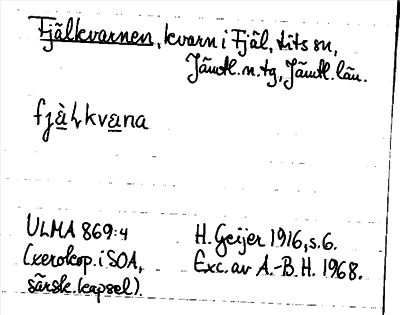 Fjälkvarnen, kvarn i Fjäl, Lits sn,
Jämtl. n. tg, Jämtl. län.
fjὰ̱Ɫkva̱na
ULMA 869:4
(xerokop. i SOA,
särsk. kapsel)
H. Geijer 1916, s. 6.
Exc. av A.-B. H. 1968.